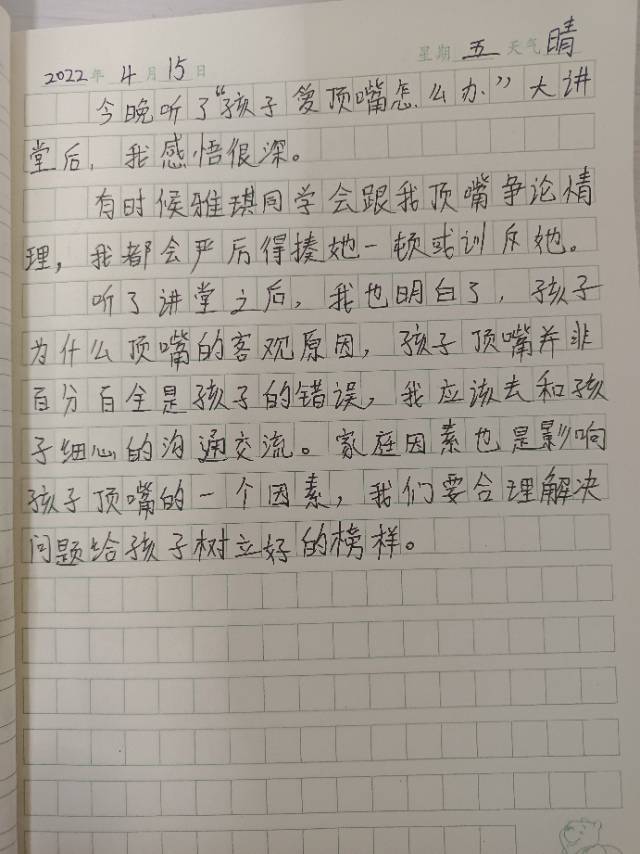 2022年4月15日 星期五 天气晴
今晚听了“孩子爱顶嘴怎么办”大讲
堂后，我感悟很深。
有时候雅琪同学会跟我顶嘴争论情
理，我都会严厉得揍她一顿或训斥她。
听了讲堂之后，我也明白了，孩子
为什么顶嘴的客观原因，孩子顶嘴并非
百分百全是孩子的错误，我应该去和孩
子细心的沟通交流。家庭因素也是影响
孩子顶嘴的一个因素，我们要合理解决
问题给孩子树立好的榜样。